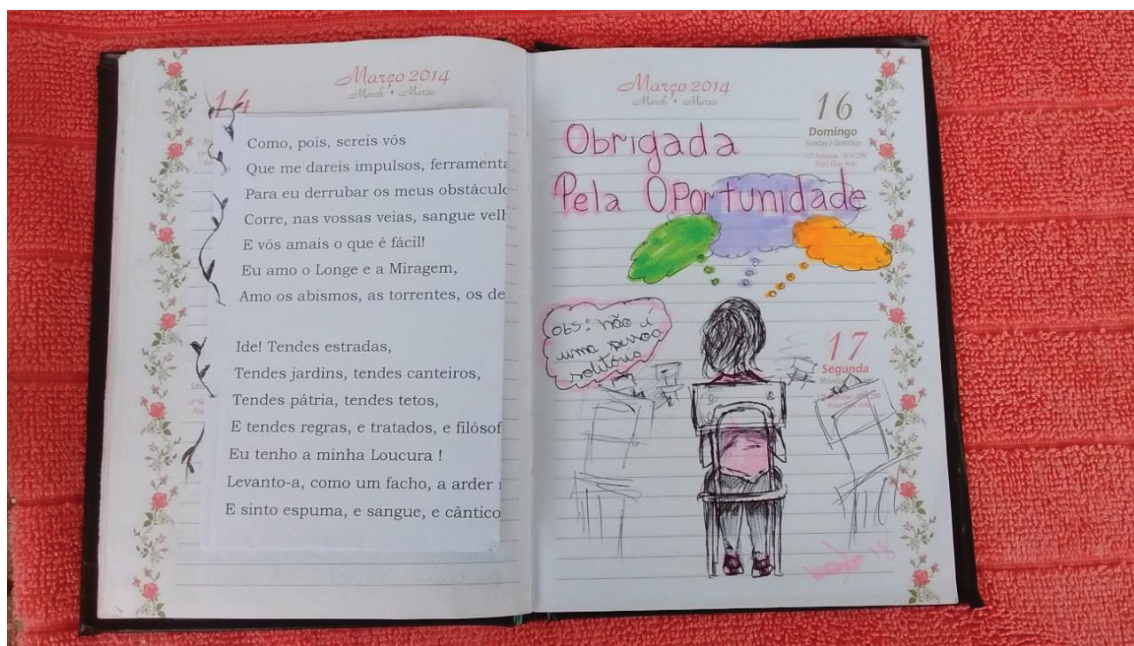 Março 2014
March • Marzo
14
Como, pois, sereis vós
Que me dareis impulsos, ferramenta
Para eu derrubar os meus obstáculo
Corre, nas vossas veias, sangue velh
E vós amais o que é fácil!
Eu amo o Longe e a Miragem,
Amo os abismos, as torrentes, os de
Ide! Tendes estradas,
Tendes jardins, tendes canteiros,
Tendes pátria, tendes tetos,
E tendes regras, e tratados, e filósof
Eu tenho a minha Loucura !
Levanto-a, como um facho, a arder
E sinto espuma, e sangue, e cântico
Março 2014
March • Marzo
16
Domingo
Sunday / Domingo
Obrigada
Pela Oportunidade
obs: não é
uma pessoa
solitária
17
Segunda